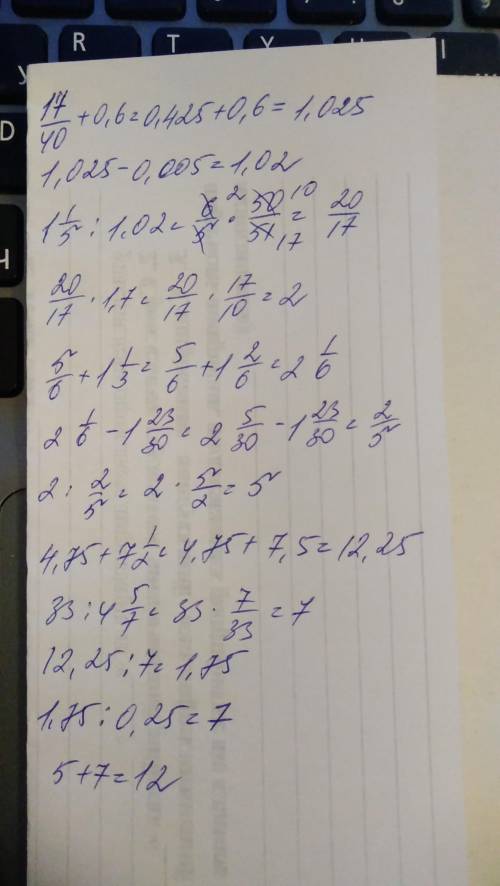 R T Y U I
D
17/40 + 0,6 = 0,425 + 0,6 = 1,025
1,025 - 0,005 = 1,02
1 1/5 : 1,02 = 6/5 2 · 50/51 10 17 = 20/17
20/17 · 1,7 = 20/17 · 17/10 = 2
5/6 + 1 1/3 = 5/6 + 1 2/6 = 2 1/6
2 1/6 - 1 23/30 = 2 5/30 - 1 23/30 = 2/5
2 : 2/5 = 2 · 5/2 = 5
4,75 + 7 1/2 = 4,75 + 7,5 = 12,25
33 : 4 5/7 = 33 · 7/33 = 7
12,25 : 7 = 1,75
1,75 : 0,25 = 7
5 + 7 = 12